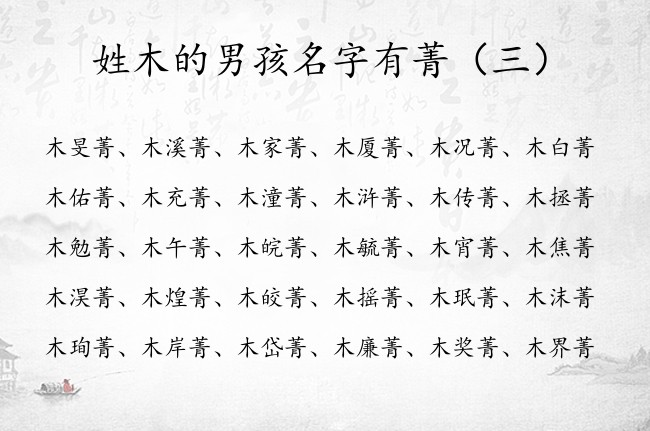 姓木的男孩名字有菁（三）
木旻菁、木溪菁、木家菁、木厦菁、木况菁、木白菁
木佑菁、木充菁、木潼菁、木浒菁、木传菁、木拯菁
木勉菁、木午菁、木皖菁、木毓菁、木宵菁、木焦菁
木淏菁、木煌菁、木皎菁、木摇菁、木珉菁、木沫菁
木珣菁、木岸菁、木岱菁、木廉菁、木奖菁、木界菁